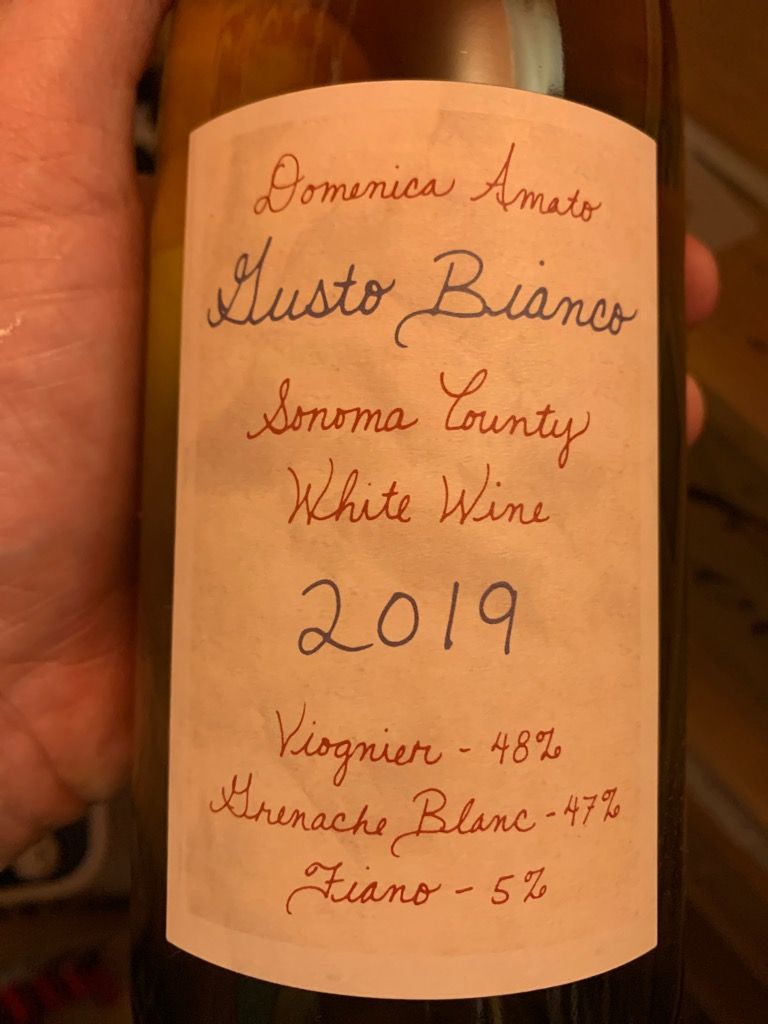 Domenica Amato
Gusto Bianco
Sonoma County
White Wine
2019
Viognier - 48%
Grenache Blanc - 47%
Fiano - 5%